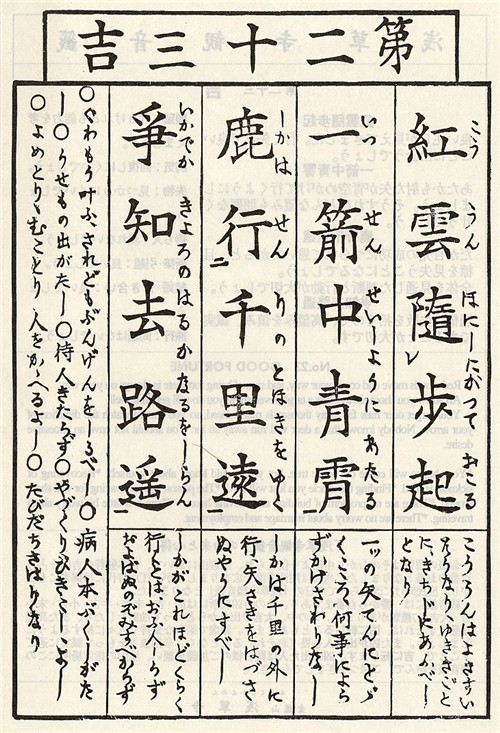 第二十三吉
紅雲隨步起
こううんほにしたがつておこる
一箭中青霄
いつせんせいしようにあたる
鹿行二千里遠一
しかはせんりのとほきをゆく
爭知去路遥
いかでかきよろのはるかなるをしらん
こううんはよきさいわ
ひなりゆくさきごと
に、きちじにあふべし
となり
一ッの矢てんにとゞ
くこころ何事によら
ずかけざわりなし
しかは千里の外に
行矢さきをはづさ
ぬやうにすべし
およばぬのぞみすべからず
されどもぶんげんをしるべし○病人本ぷくしがた
し○うせもの出がたし○待人きたらず○やづくりひきこしよし
○よめとりむことり人をかゝへるよし○たびだちさはりなり